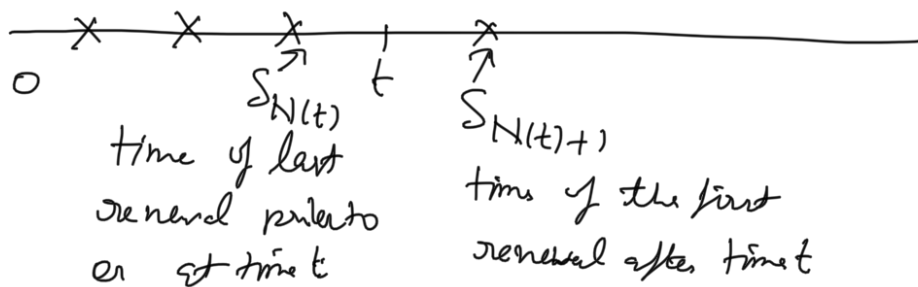 0 S_N(t) t S_N(t)+1
time of last
renewal prior to
or at time t
time of the first
renewal after time t